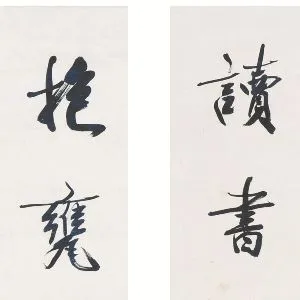 讀書
抱甕